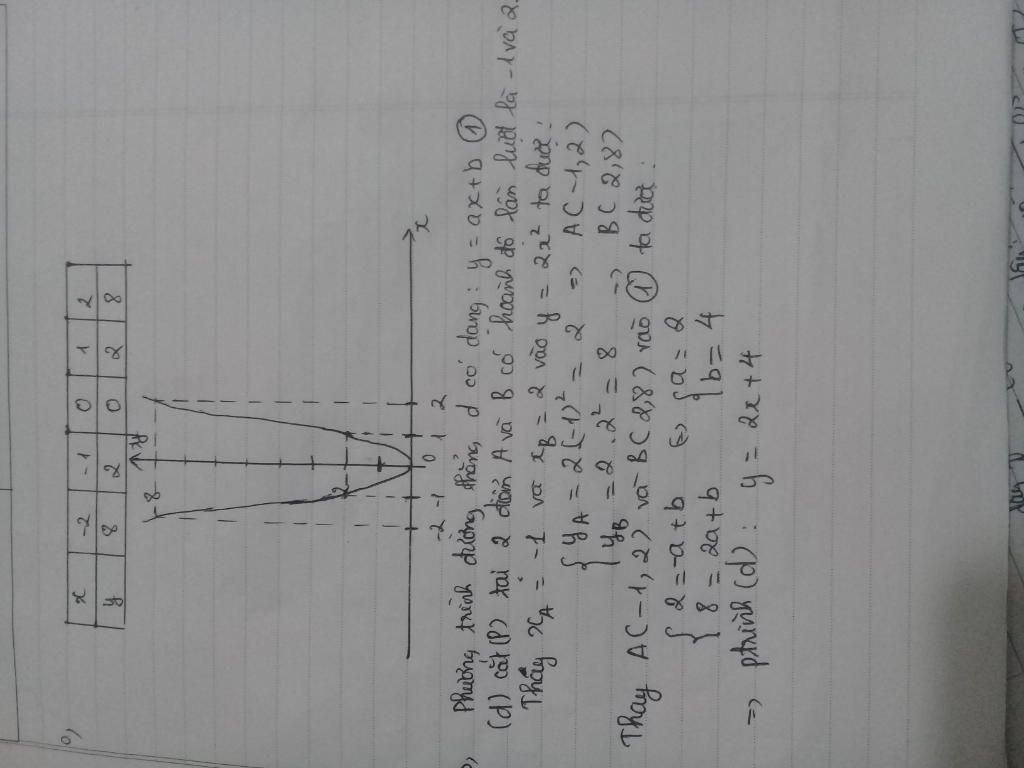 a,
x -2 -1 0 1 2
y 8 2 0 2 8
y
8
2
-2 -1 0 1 2 x
b, Phương trình đường thẳng d có dạng: y = ax+b ①
(d) cắt (P) tại 2 điểm A và B có hoành độ lần lượt là -1 và 2.
Thay x_A = -1 và x_B = 2 vào y = 2x² ta được:
{ y_A = 2(-1)² = 2 => A(-1,2)
{ y_B = 2.2² = 8 => B(2,8)
Thay A(-1,2) và B(2,8) vào ① ta được:
{ 2 = -a+b <=> { a = 2
{ 8 = 2a+b { b = 4
=> ptrình (d): y = 2x+4